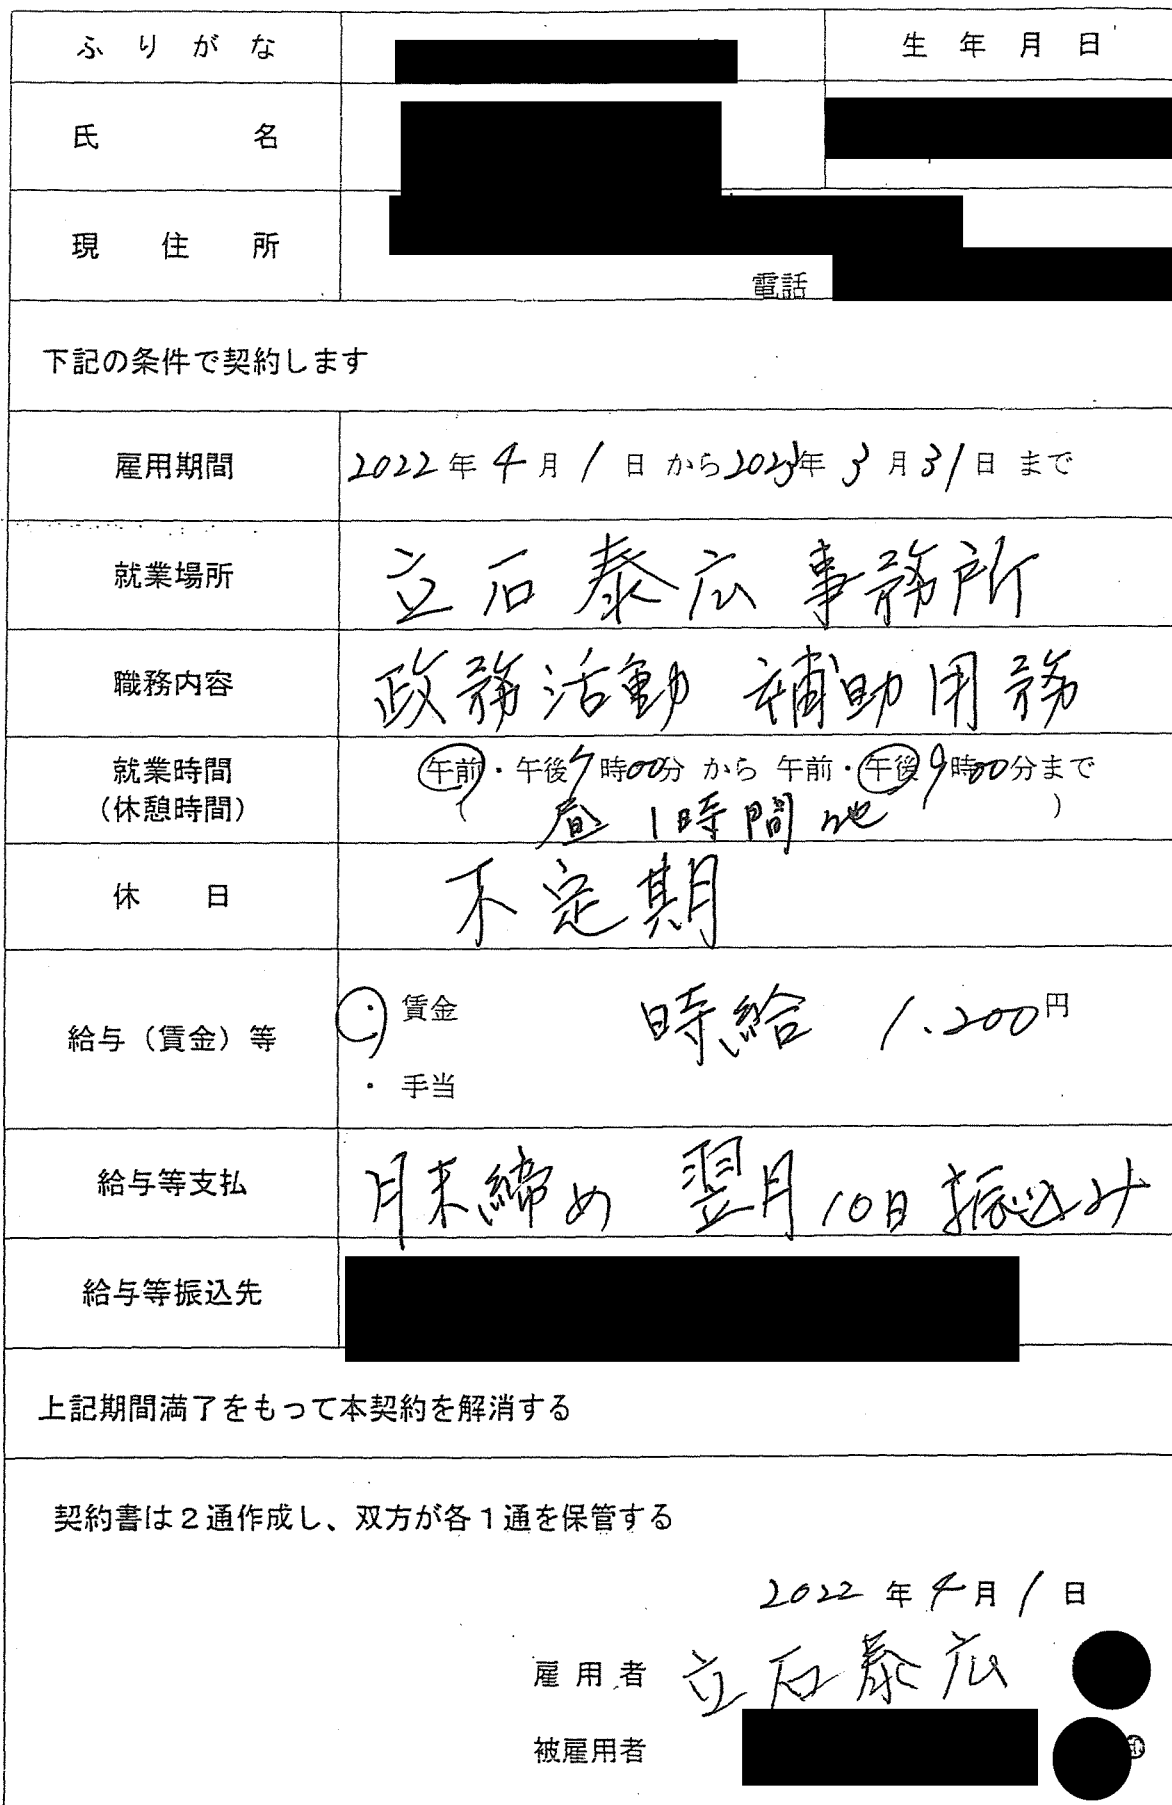 ふりがな
生年月日
氏名
現住所
電話
下記の条件で契約します
雇用期間 2022年4月1日から2023年3月31日まで
就業場所 立石泰広事務所
職務内容 政務活動 補助用務
就業時間 午前・午後 時00分 から 午前・午後9時00分まで
(休憩時間) ( 昼 1時間 他 )
休日 不定期
給与(賃金)等 ・賃金 時給 1.200円
・手当
給与等支払 月末締め 翌月10日振込み
給与等振込先
上記期間満了をもって本契約を解消する
契約書は2通作成し、双方が各1通を保管する
2022年4月1日
雇用者 立石泰広
被雇用者